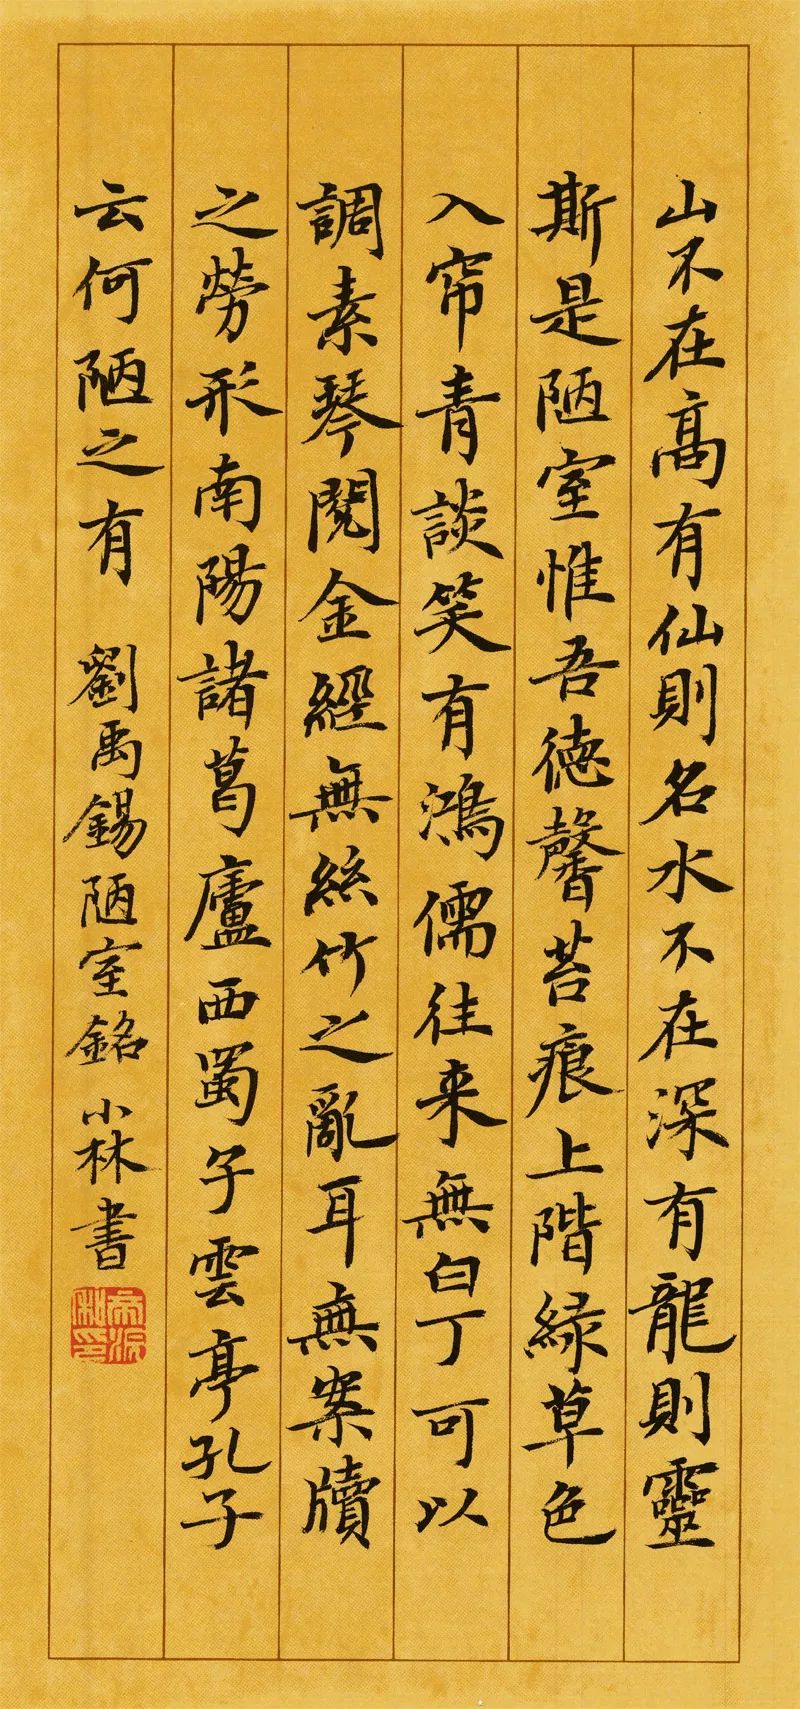 山不在高有仙則名水不在深有龍則靈
斯是陋室惟吾德馨苔痕上階緑草色
入帘青談笑有鴻儒往来無白丁可以
調素琴閱金經無絲竹之亂耳無案牘
之勞形南陽諸葛廬西蜀子雲亭孔子
云何陋之有 劉禹錫陋室銘 小林書